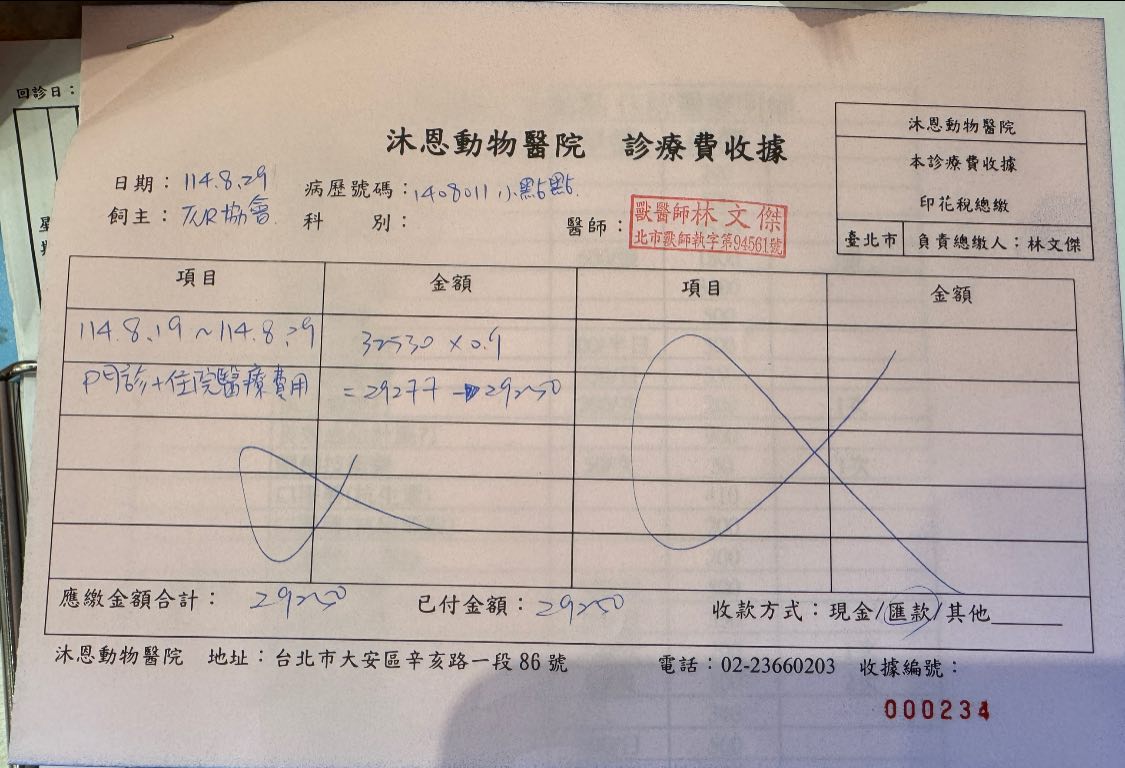 回診日：
沐恩動物醫院　診療費收據
沐恩動物醫院
本診療費收據
印花稅總繳
臺北市　負責總繳人：林文傑
日期：114.8.29　病歷號碼：1408011 小點點
飼主：TNR協會　科　別：　醫師：
獸醫師林文傑
北市獸師執字第94561號
項目　金額　項目　金額
114.8.19～114.8.29　32530×0.9
門診+住院醫療費用　=29277→29250
應繳金額合計：29250　已付金額：29250　收款方式：現金/匯款/其他
沐恩動物醫院　地址：台北市大安區辛亥路一段86號　電話：02-23660203　收據編號：
000234